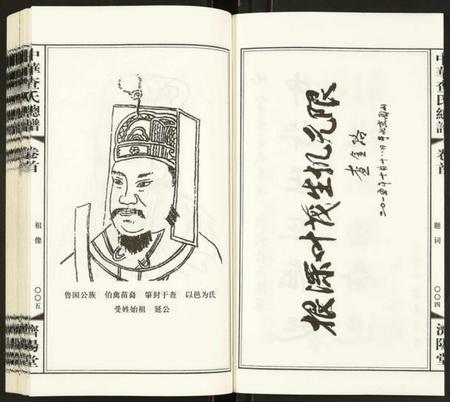 中華查氏總譜
卷首
題詞
〇〇四
濟陽堂
根深叶茂生机无限
查全培
中華查氏總譜
卷首
祖像
〇〇五
濟陽堂
鲁国公族 伯禽苗裔 肇封于查 以邑为氏
受姓始祖 延公